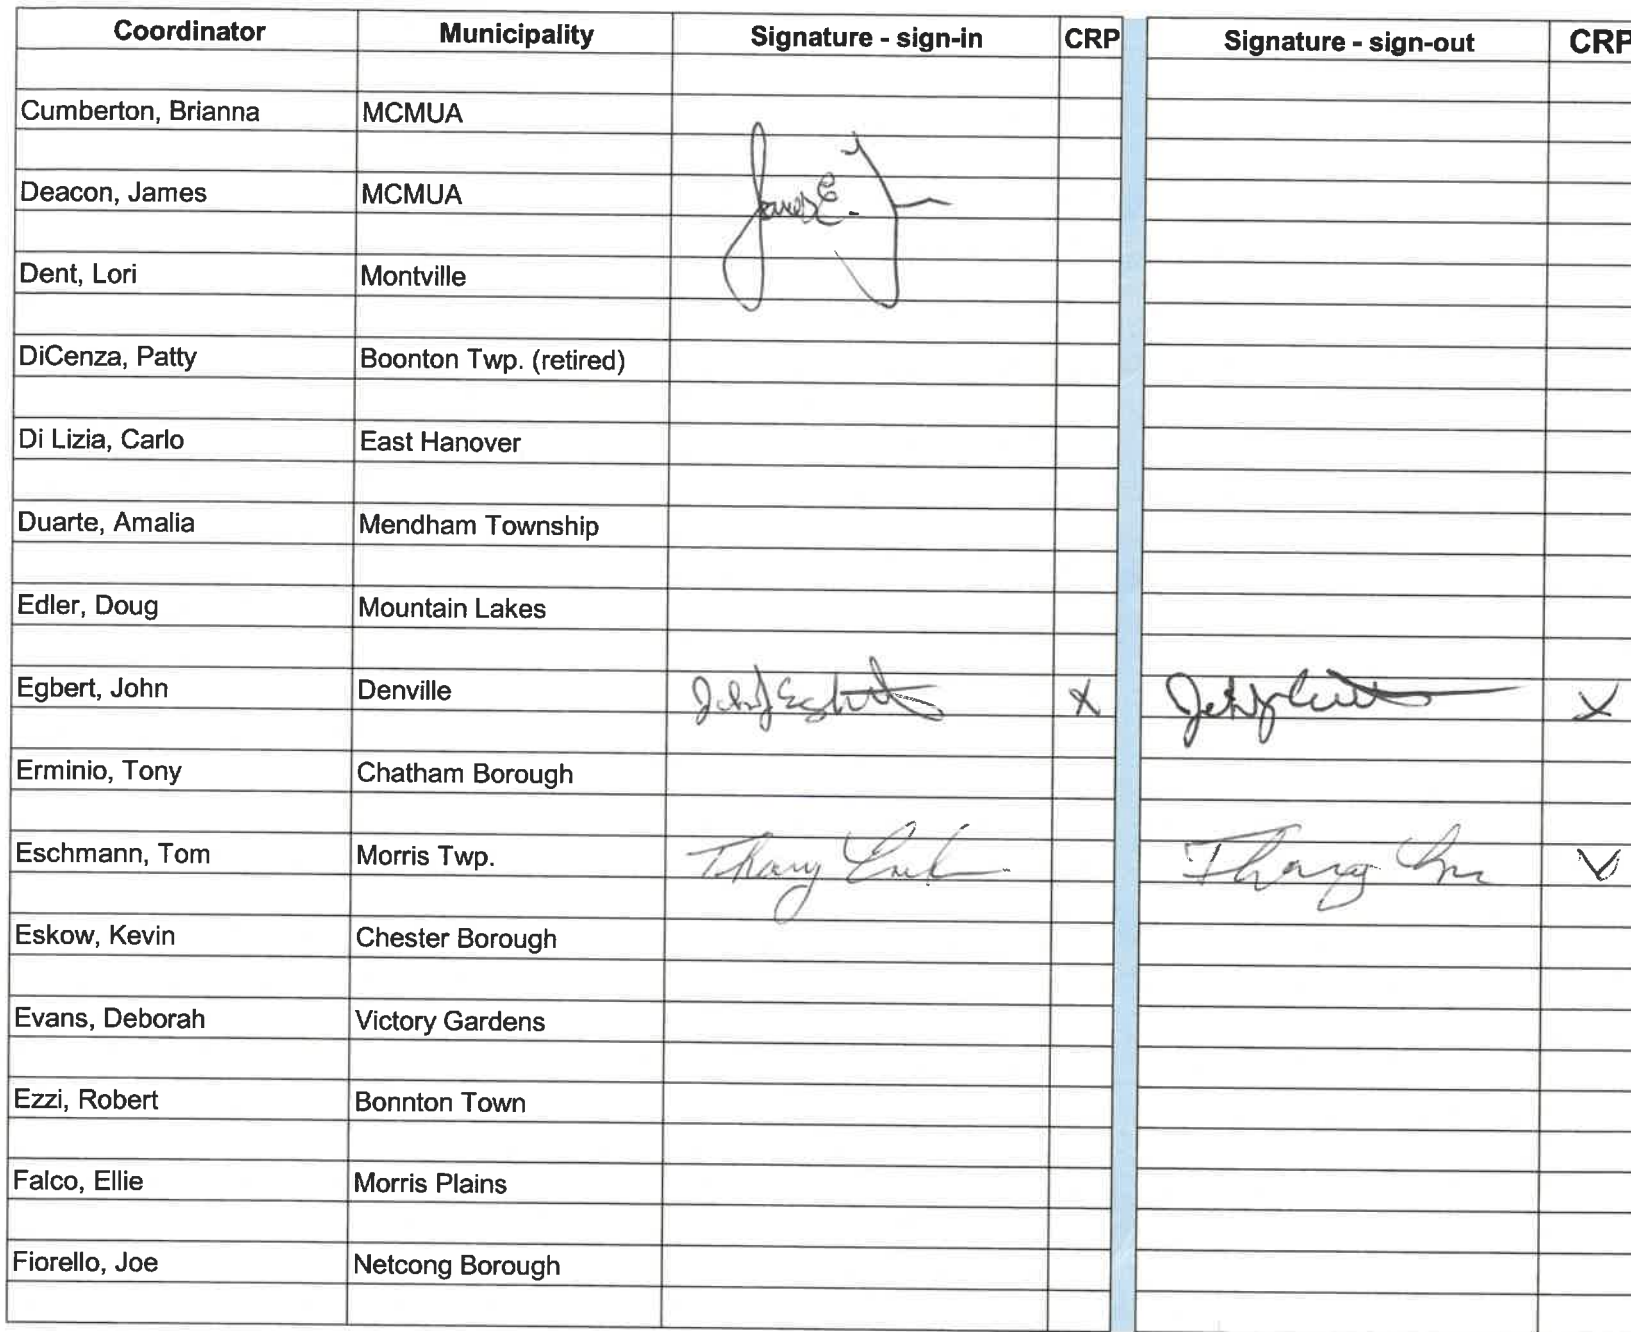 Coordinator Municipality Signature - sign-in CRP Signature - sign-out CRP
Cumberton, Brianna MCMUA
Deacon, James MCMUA James E.
Dent, Lori Montville
DiCenza, Patty Boonton Twp. (retired)
Di Lizia, Carlo East Hanover
Duarte, Amalia Mendham Township
Edler, Doug Mountain Lakes
Egbert, John Denville John J Egbert X X
Erminio, Tony Chatham Borough
Eschmann, Tom Morris Twp.
Eskow, Kevin Chester Borough
Evans, Deborah Victory Gardens
Ezzi, Robert Bonnton Town
Falco, Ellie Morris Plains
Fiorello, Joe Netcong Borough